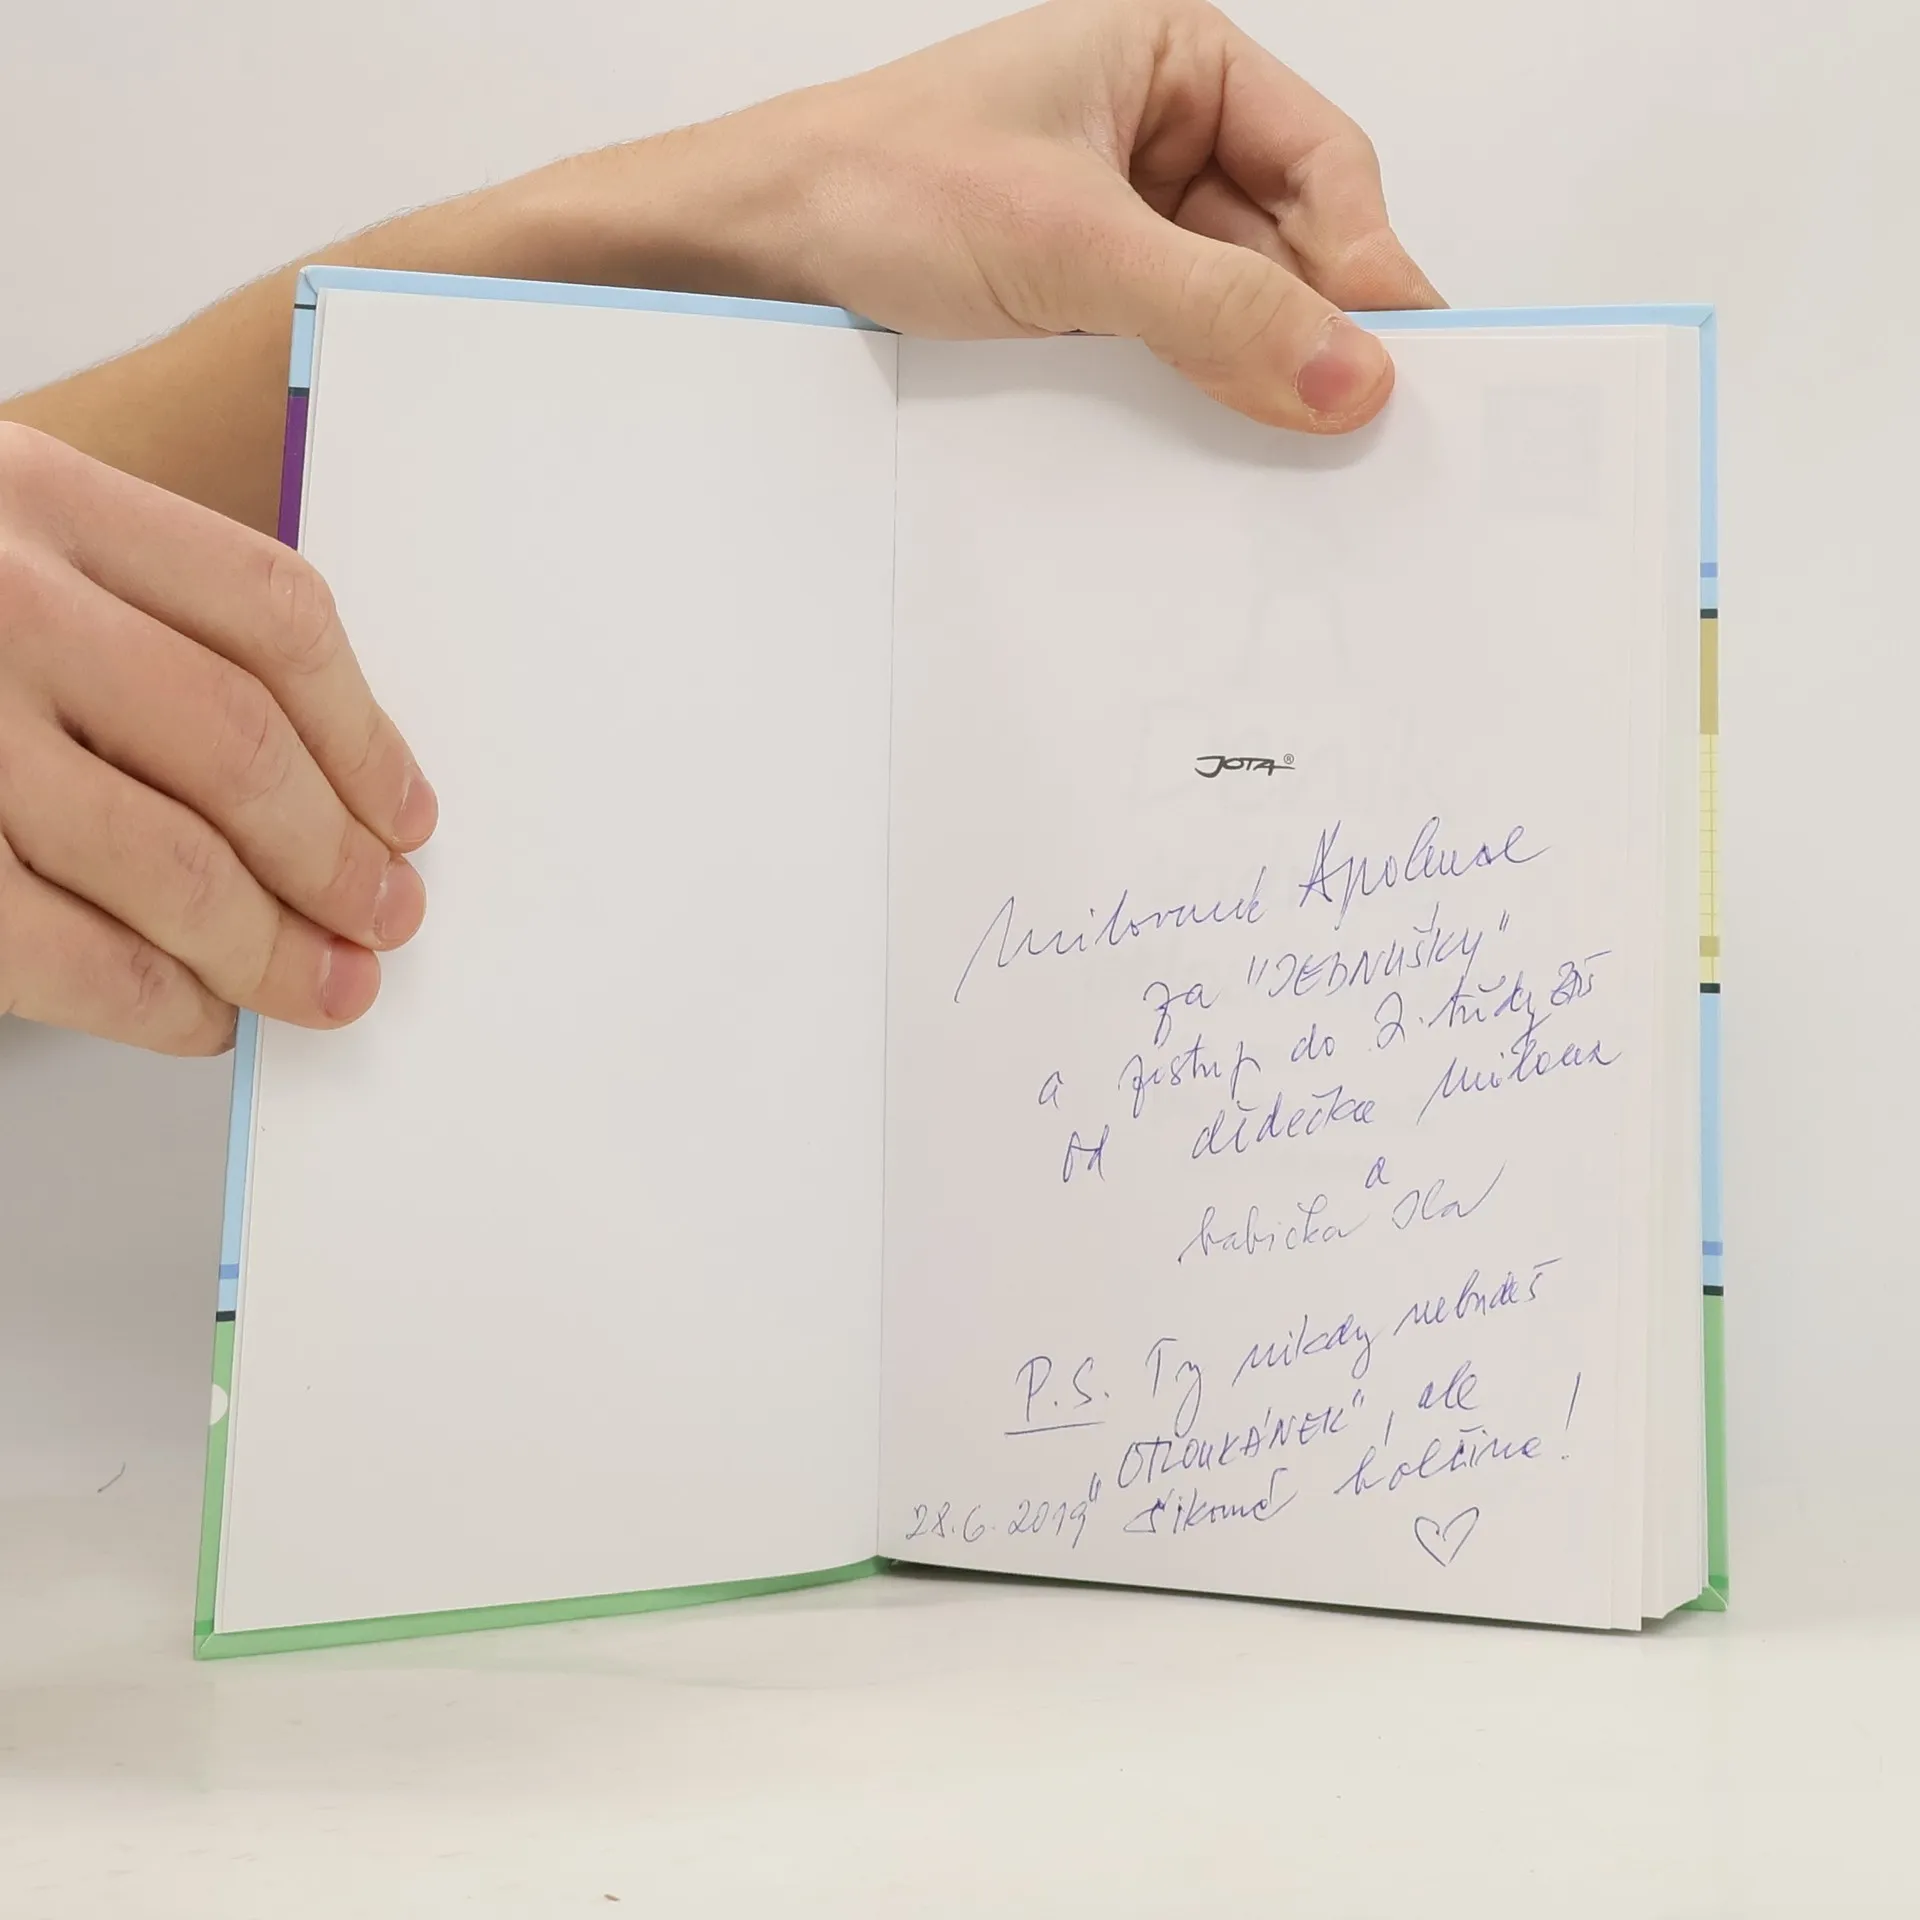 JOTA®
Milované Apolence
za "JEDNUŠKY"
a postup do 2. třídy ZŠ
od dědečka Milana
a
babička Ola
P.S. Ty nikdy nebudeš
"OTLOUKÁNEK", ale
šikovná holčina!
28.6.2019